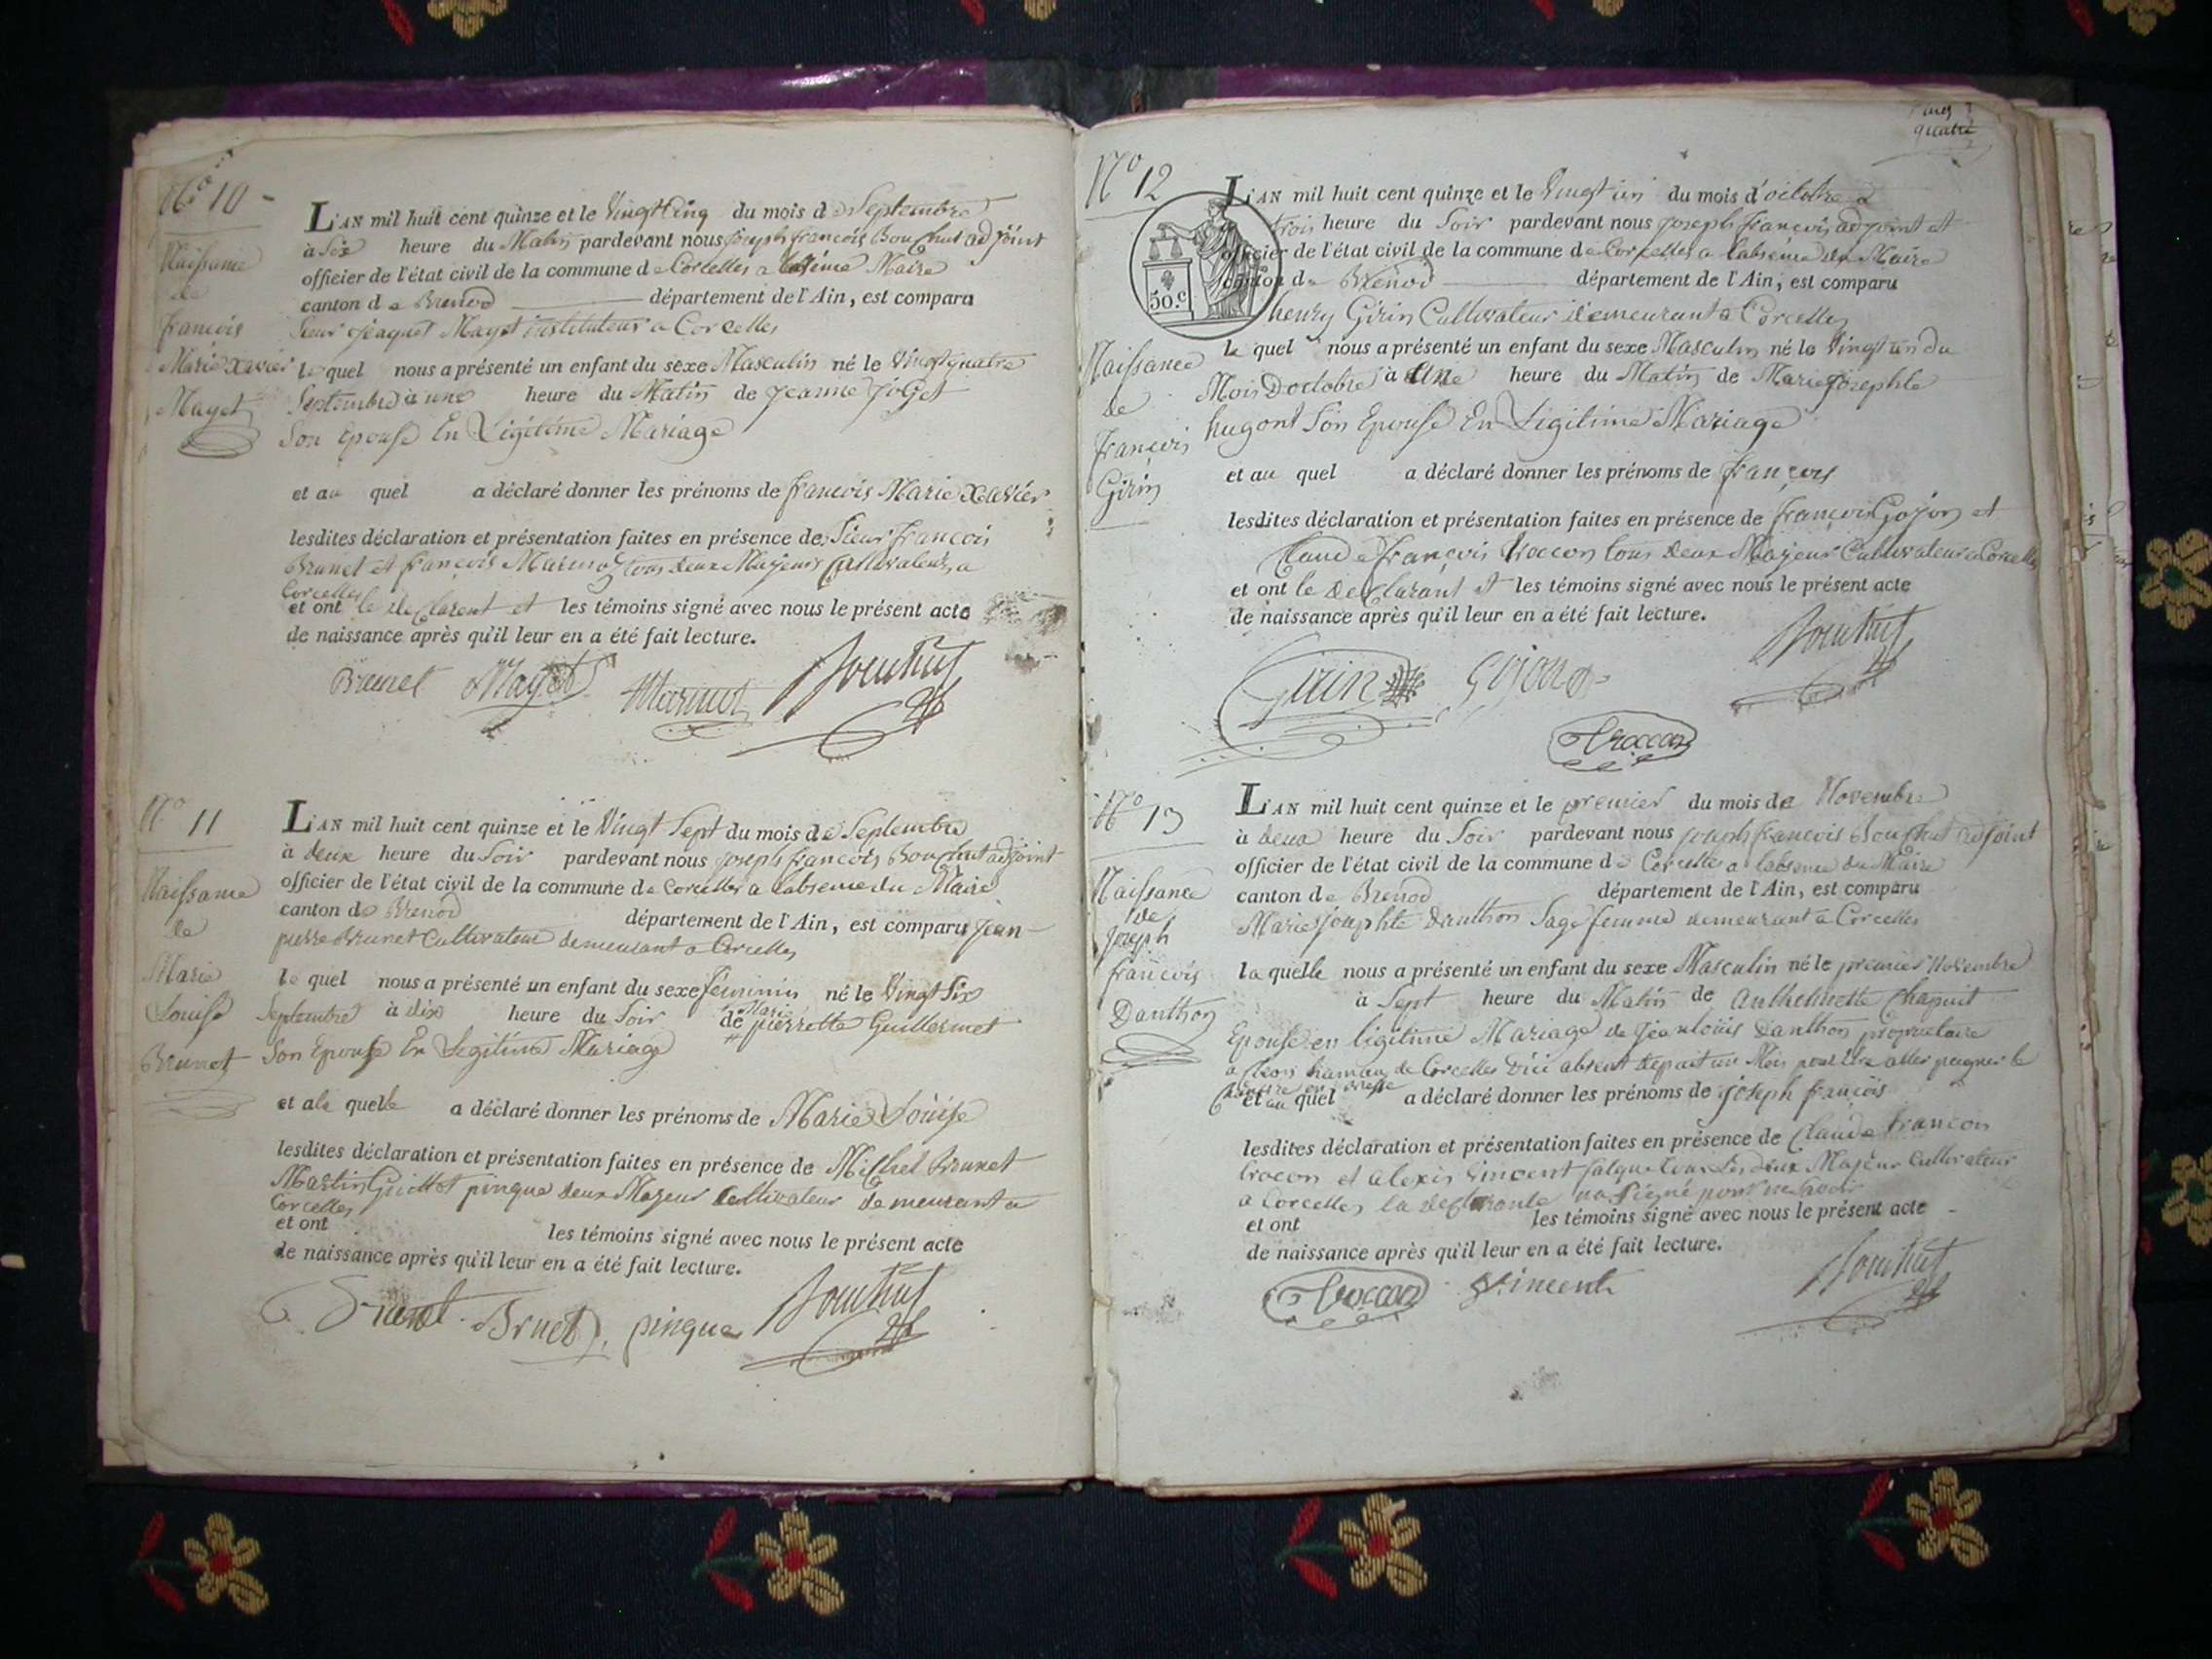 N.º 10
Naissance
de
françois
Marie Xavier
Mayet
L'AN mil huit cent quinze et le Vingt Cinq du mois de Septembre
à Six heure du Matin pardevant nous joseph françois Bouchut adjoint
officier de l'état civil de la commune de Corcelles a Maire
canton de Brenod département de l'Ain, est comparu
Sieur jacquet Mayet instituteur a Corcelles
le quel nous a présenté un enfant du sexe Masculin né le Vingt quatre
Septembre à une heure du Matin de jeanne
Son Epouse En Légitime Mariage
et au quel a déclaré donner les prénoms de françois Marie Xavier
lesdites déclaration et présentation faites en présence de Sieur françois
Brunet et françois tous deux Majeurs Cultivateurs a
Corcelles
et ont le declarent et les témoins signé avec nous le présent acte
de naissance après qu'il leur en a été fait lecture.
Brunet Mayet Bouchut
N.º 11
Naissance
de
Marie
Louise
Brunet
L'AN mil huit cent quinze et le Vingt Sept du mois de Septembre
à deux heure du Soir pardevant nous joseph françois Bouchut adjoint
officier de l'état civil de la commune de Corcelles a l'absence du Maire
canton de Brenod département de l'Ain, est comparu jean
pierre Brunet Cultivateur demeurant a Corcelles
le quel nous a présenté un enfant du sexe féminin né le Vingt Six
Septembre à dix heure du Soir de Marie pierrette Guillermet
Son Epouse En Legitime Mariage
et a la quelle a déclaré donner les prénoms de Marie Louise
lesdites déclaration et présentation faites en présence de Michel Brunet
Martin Guillot pingue deux Majeur Cultivateur demeurant a
Corcelles
et ont les témoins signé avec nous le présent acte
de naissance après qu'il leur en a été fait lecture.
Brunet Brunet pingue Bouchut
quatre
N.º 12
50.c
Naissance
de
françois
Girin
L'AN mil huit cent quinze et le Vingt un du mois d'octobre a
trois heure du Soir pardevant nous joseph françois adjoint et
officier de l'état civil de la commune de Corcelles a l'absence du Maire
canton de Brenod département de l'Ain, est comparu
henry Girin Cultivateur demeurant a Corcelles
le quel nous a présenté un enfant du sexe Masculin né le Vingt un du
Mois Doctobre à Une heure du Matin de Marie josephte
hugont Son Epouse En Ligitime Mariage
et au quel a déclaré donner les prénoms de françois
lesdites déclaration et présentation faites en présence de françois Gojon et
Claude françois trocon tous deux Majeur Cultivateur a Corcelles
et ont le declarant et les témoins signé avec nous le présent acte
de naissance après qu'il leur en a été fait lecture.
Girin Gojon Bouchut
Troccon
N.º 13
Naissance
de
joseph
françois
Danthon
L'AN mil huit cent quinze et le premier du mois de Novembre
à deux heure du Soir pardevant nous joseph françois Bouchut adjoint
officier de l'état civil de la commune de Corcelles a l'absence du Maire
canton de Brenod département de l'Ain, est comparu
Marie josephte Danthon Sage femme demeurant a Corcelles
la quelle nous a présenté un enfant du sexe Masculin né le premier Novembre
à Sept heure du Matin de Anthelmette Chapuit
Epouse en ligitime Mariage de jean louis Danthon propriétaire
a hameau de Corcelles absent depuit un Mois pour aller peigner le
Chanvre en Bresse
et au quel a déclaré donner les prénoms de joseph françois
lesdites déclaration et présentation faites en présence de Claude francois
trocon et alexis Vincent deux Majeur Cultivateur
a Corcelles la declarante na Signé pour ne Savoir
et ont les témoins signé avec nous le présent acte
de naissance après qu'il leur en a été fait lecture.
Troccon Vincent Bouchut